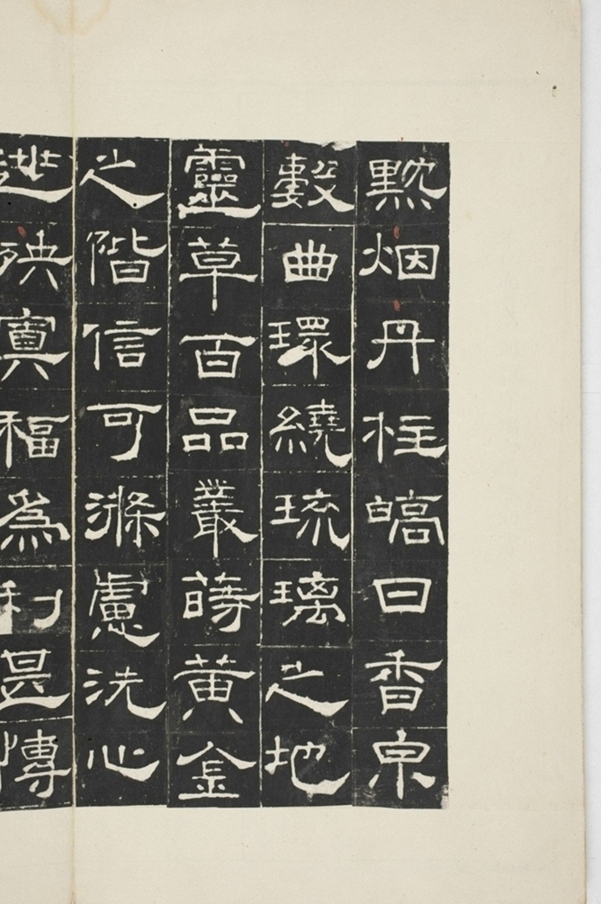 黕烟丹柱皜日香泉
數曲環繞琉璃之地
靈草百品叢蒔黄金
之階信可滌慮洗心
逃殃冥福為利甚博